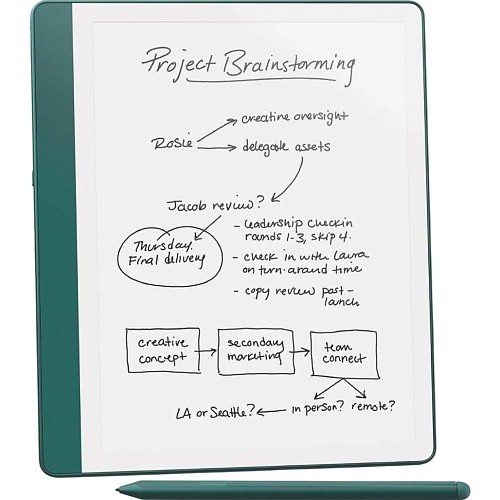 Project Brainstorming
creative oversight
Rosie
delegate assets
Jacob review?
- leadership checkin
rounds 1-3, skip 4.
Thursday.
Final delivery
- check in with Laura
on turn-around time
- copy review post-
launch
creative
concept
secondary
marketing
team
connect
LA or Seattle?
in person?
remote?